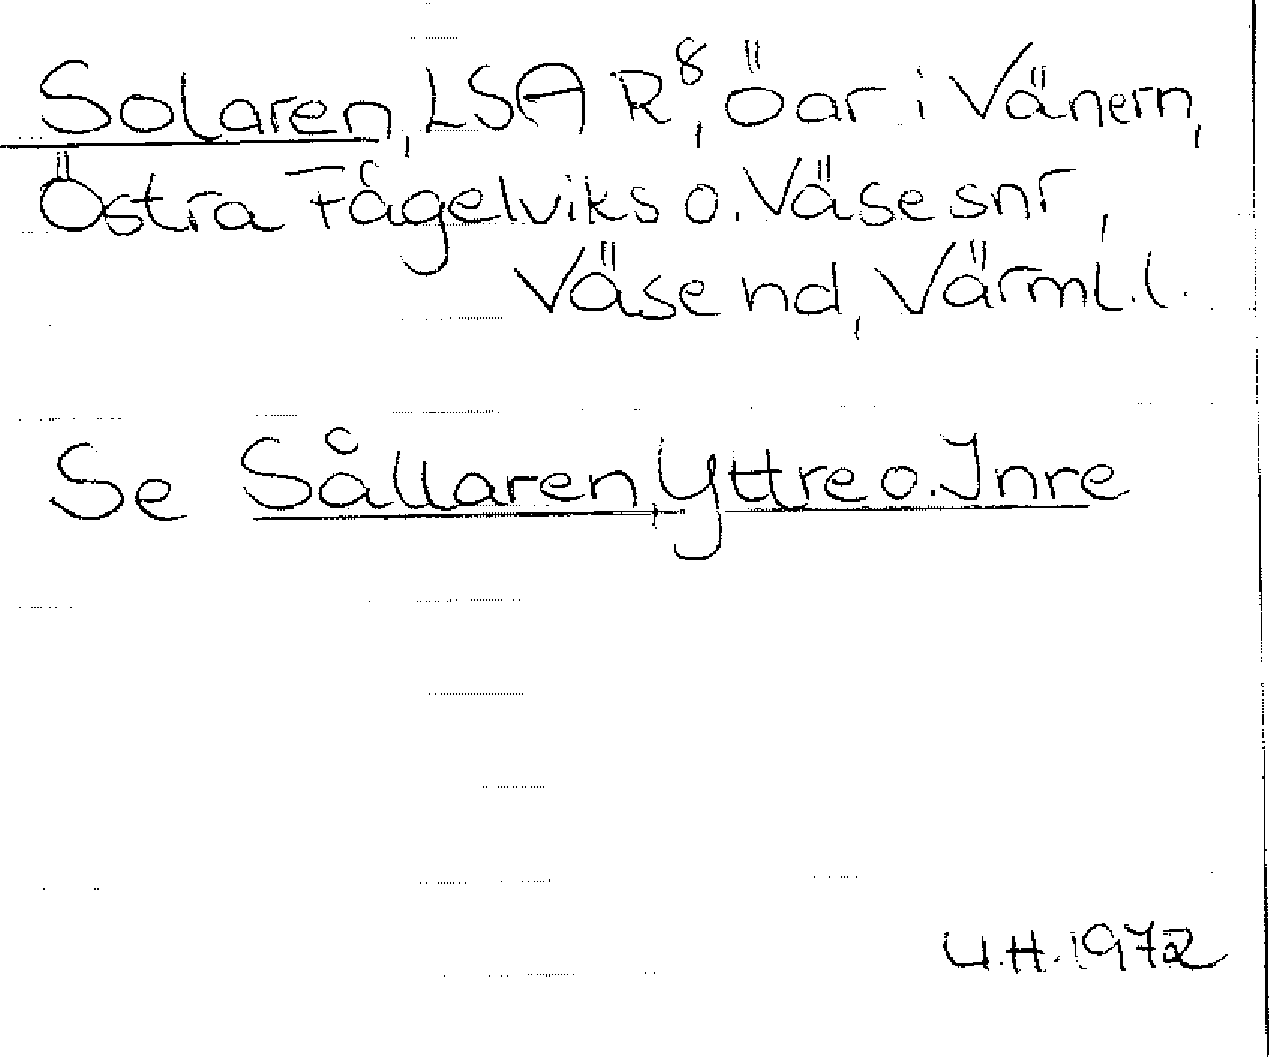 Solaren, LSA R⁸, öar i Vänern,
Östra Fågelviks o. Väse snr,
Väse nd, Värml. l.
Se Sållaren, Yttre o. Inre
U.H. 1972